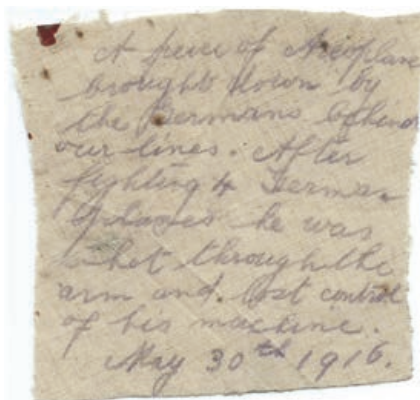 A piece of Aeroplane
brought down by
the Germans behind
our lines. After
fighting 4 German
planes he was
shot through the
arm and lost control
of his machine.
May 30th 1916.